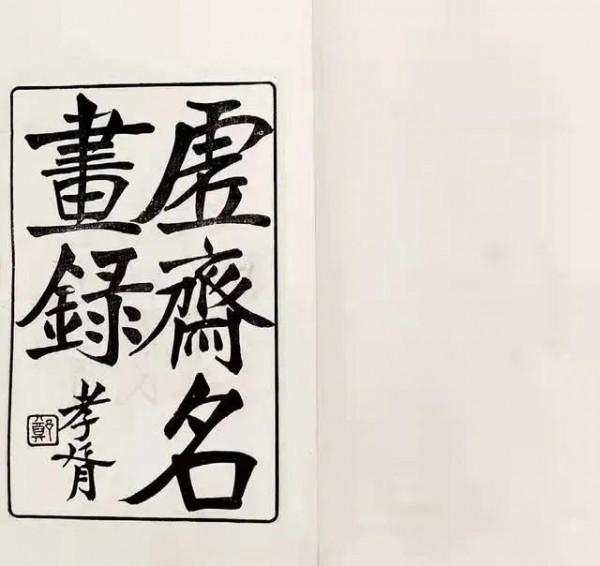 虛齋名
畫録
孝胥
鄭